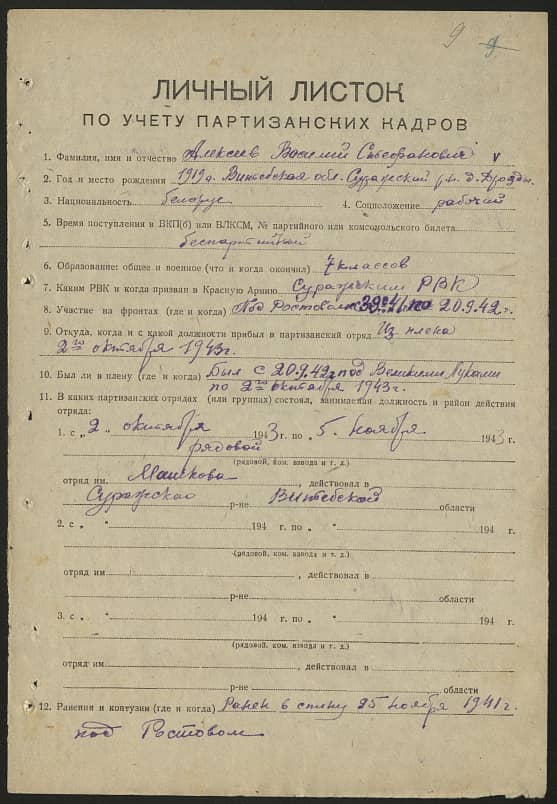 9 9
ЛИЧНЫЙ ЛИСТОК
ПО УЧЕТУ ПАРТИЗАНСКИХ КАДРОВ
1. Фамилия, имя и отчество Алексеев Василий Стефанович v
2. Год и место рождения 1919 г. Витебская обл. Суражский р-н. д.
3. Национальность белорус 4. Соцположение рабочий
5. Время поступления в ВКП(б) или ВЛКСМ, № партийного или комсомольского билета
беспартийный
6. Образование общее и военное (что и когда окончил) 7 классов
7. Каким РВК и когда призван в Красную Армию Суражским РВК
8. Участие на фронтах (где и когда) Под Ростовом по 20.9.42 г.
9. Откуда, когда и с какой должности прибыл в партизанский отряд Из плена
2го октября 1943 г.
10. Был ли в плену (где и когда) Был с 20.9.42 г. под Великими Луками
по 2го октября 1943 г.
11. В каких партизанских отрядах (или группах) состоял, занимаемая должность и район действия
отряда:
1. с „2„ октября 1943 г. по 5. ноября 1943 г.
рядовой
(рядовой, ком. взвода и т. д.)
отряд им. Машкова, действовал в
Суражско р-не Витебской области
2. с „ “ 194 г. по „ “ 194 г.
(рядовой, ком. взвода и т. д.)
отряд им , действовал в
р-не области
3. с „ “ 194 г. по „ “ 194 г.
(рядовой, ком. взвода и т. д.)
отряд им , действовал в
р-не области
12. Ранения и контузии (где и когда) Ранен в спину 25 ноября 1941 г.
под Ростовом